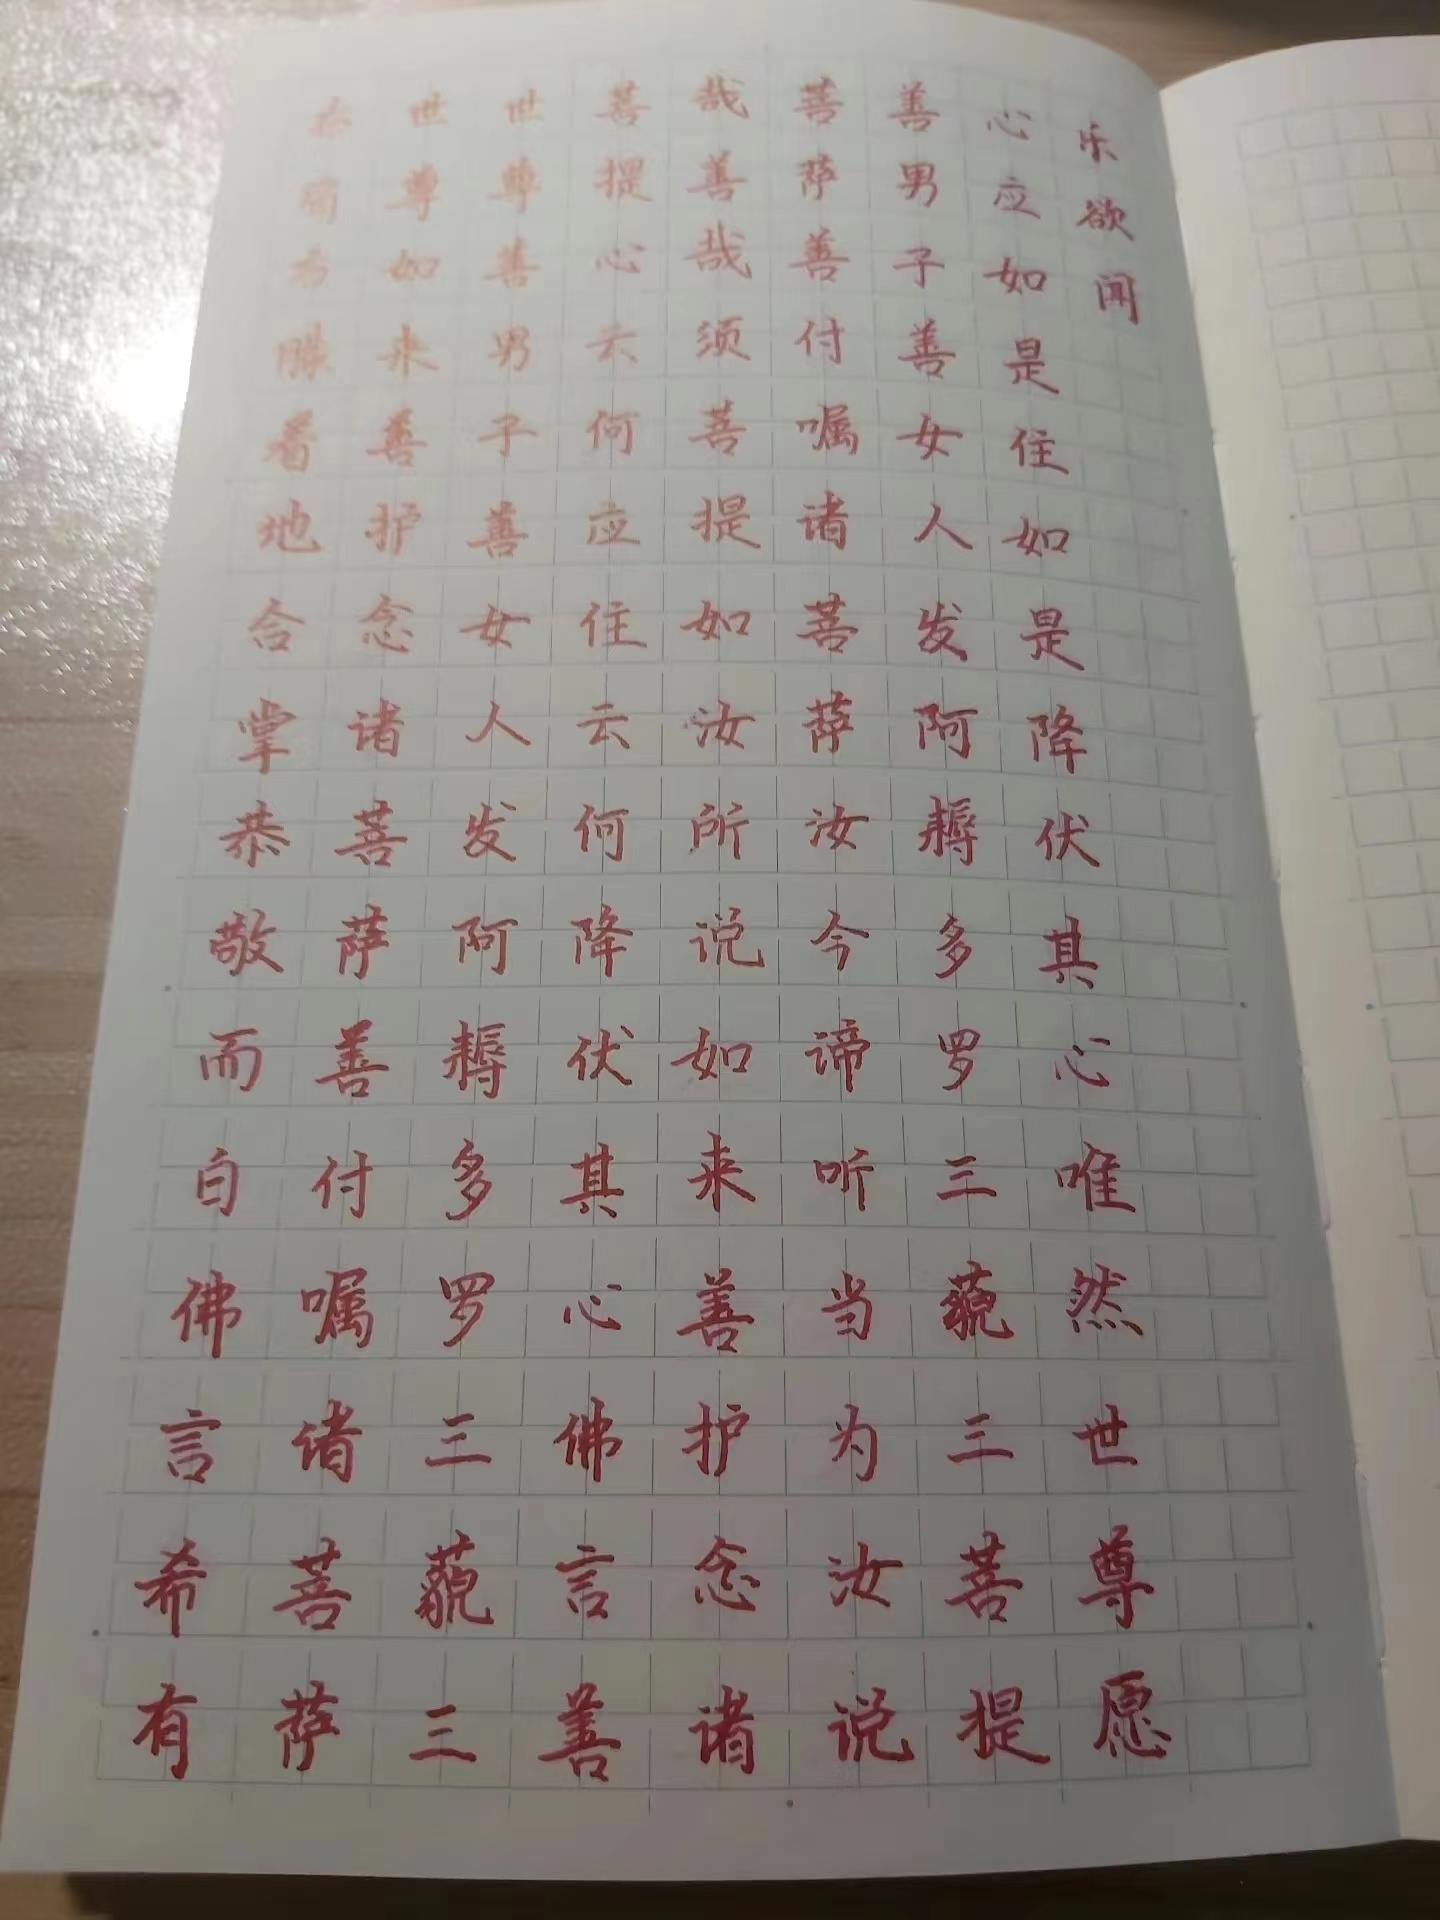 右肩右膝着地合掌恭敬而白佛言希有
世尊如来善护念诸菩萨善付嘱诸菩萨
世尊善男子善女人发阿耨多罗三藐三
菩提心云何应住云何降伏其心佛言善
哉善哉须菩提如汝所说如来善护念诸
菩萨善付嘱诸菩萨汝今谛听当为汝说
善男子善女人发阿耨多罗三藐三菩提
心应如是住如是降伏其心唯然世尊愿
乐欲闻